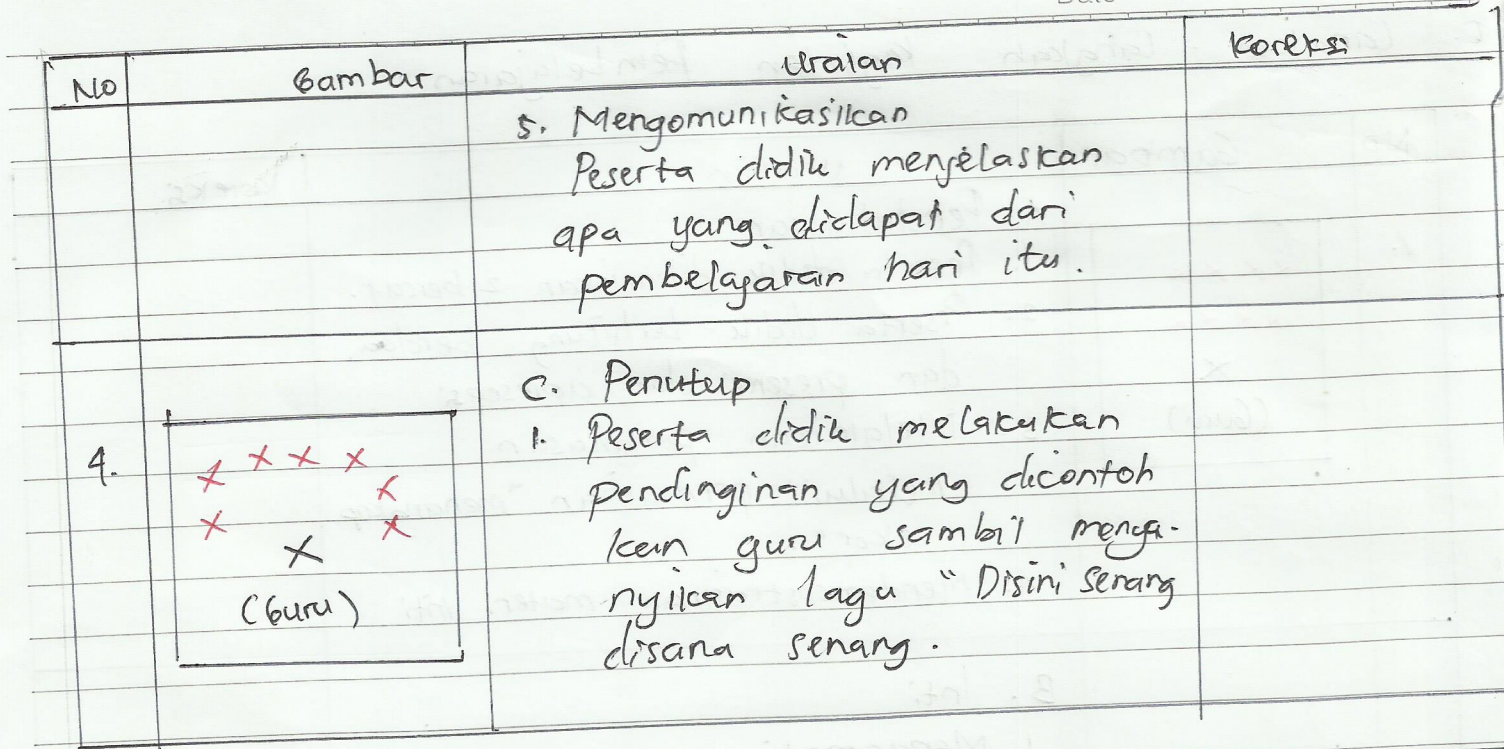 No Gambar Uraian Koreksi
5. Mengomunikasikan
Peserta didik menjelaskan
apa yang didapat dari
pembelajaran hari itu.
C. Penutup
4.
1. Peserta didik melakukan
pendinginan yang dicontoh
kan guru sambil menya-
nyikan lagu "Disini senang
disana senang.
x x x x
x
x x
x
(Guru)